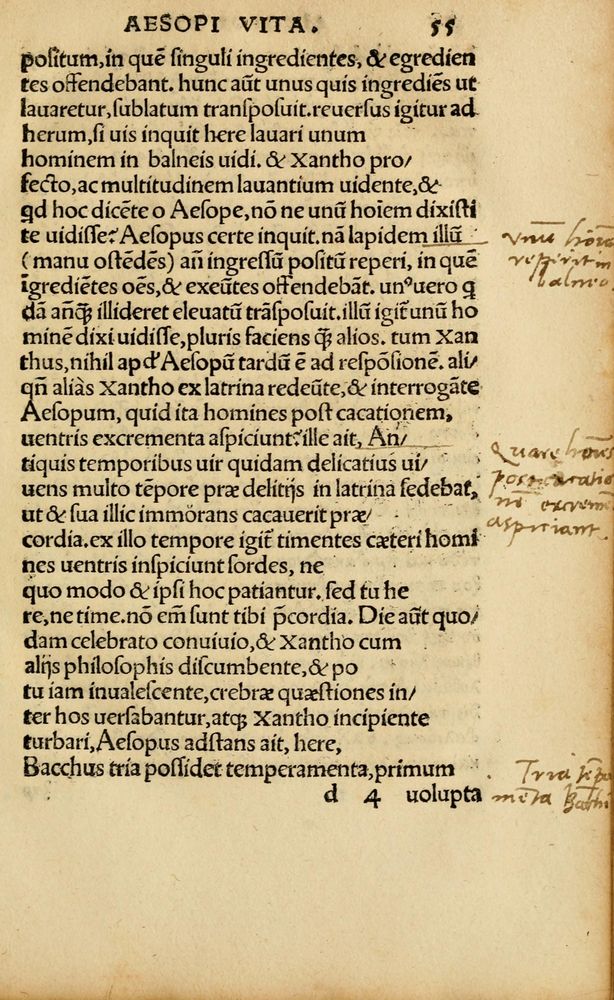 AESOPI VITA. 55
positum, in quē singuli ingredientes, & egredien
tes offendebant. hunc aūt unus quis ingrediēs ut
lauaretur, sublatum transposuit. reuersus igitur ad
herum, si uis inquit here lauari unum
hominem in balneis uidi. & Xantho pro/
fecto, ac multitudinem lauantium uidente, &
qd hoc dicēte o Aesope, nō ne unū hoīem dixisti
te uidisse? Aesopus certe inquit. nā lapidem illū
(manu ostēdēs) añ ingressū positū reperi, in quē
īgrediētes oēs, & exeūtes offendebāt. unꝰuero q
dā añq̃ illideret eleuatū trāsposuit. illū igit̃ unū ho
minē dixi uidisse, pluris faciens q̃ alios. tum Xan
thus, nihil apd' Aesopū tardū ē ad respōsionē. ali/
qñ aliàs Xantho ex latrina redeūte, & interrogāte
Aesopum, quid ita homines post cacationem,
uentris excrementa aspiciunt? ille ait, An/
tiquis temporibus uir quidam delicatius ui/
uens multo tēpore præ delitijs in latrina sedebat,
ut & sua illic immōrans cacauerit præ/
cordia. ex illo tempore igit̃ timentes cæteri homi
nes uentris inspiciunt sordes, ne
quo modo & ipsi hoc patiantur. sed tu he
re, ne time. nō em̄ sunt tibi p̄cordia. Die aūt quo/
dam celebrato conuiuio, & Xantho cum
alijs philosophis discumbente, & po
tu iam inualescente, crebræ quæstiones in/
ter hos uersabantur, atq; Xantho incipiente
turbari, Aesopus adstans ait, here,
Bacchus tria possidet temperamenta, primum
d 4 uolupta
Vnū hoīē
reperit in
balneo
Quare hoīes
post cacatio
nē excrem
aspiciant.
Tria tēpa
mēta Bacchi